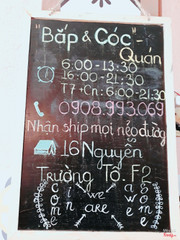 "Bắp & Cóc"
Quán
6:00-13:30
16:00-21:30
T7+Cn: 6:00-21:30
0908.993.069
Nhận ship mọi nẻo đường
16 Nguyễn
Trường Tộ. F2
come in we are awesome